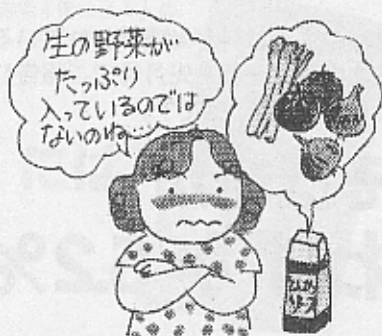 生の野菜が
たっぷり
入っているのでは
ないのね…